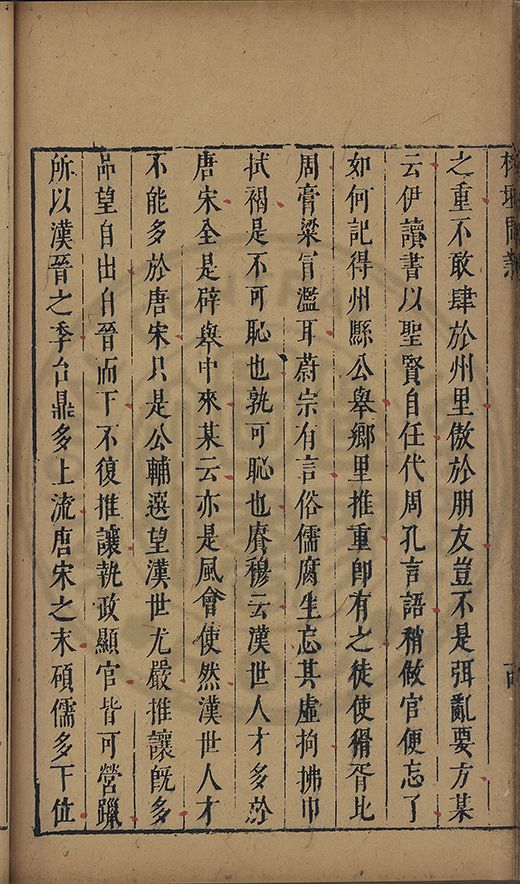 之重不敢肆於州里傲於朋友豈不是弭亂要方某
云伊讀書以聖賢自任代周孔言語稍做官便忘了
如何記得州縣公舉鄉里推重卽有之徒使稱胥比
周膏粱冒濫耳蔚宗有言俗儒腐生忘其虛拘拂巾
拭褐是不可恥也孰可恥也賡穆云漢世人才多於
唐宋全是辟舉中來某云亦是風會使然漢世人才
不能多於唐宋只是公輔選望漢世尤嚴推讓旣多
品望自出自晉而下不復推讓執政顯官皆可營躐
所以漢晉之季台鼎多上流唐宋之末碩儒多下位